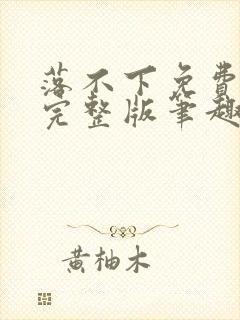 落不下免费
完整版笔趣
黄柚木